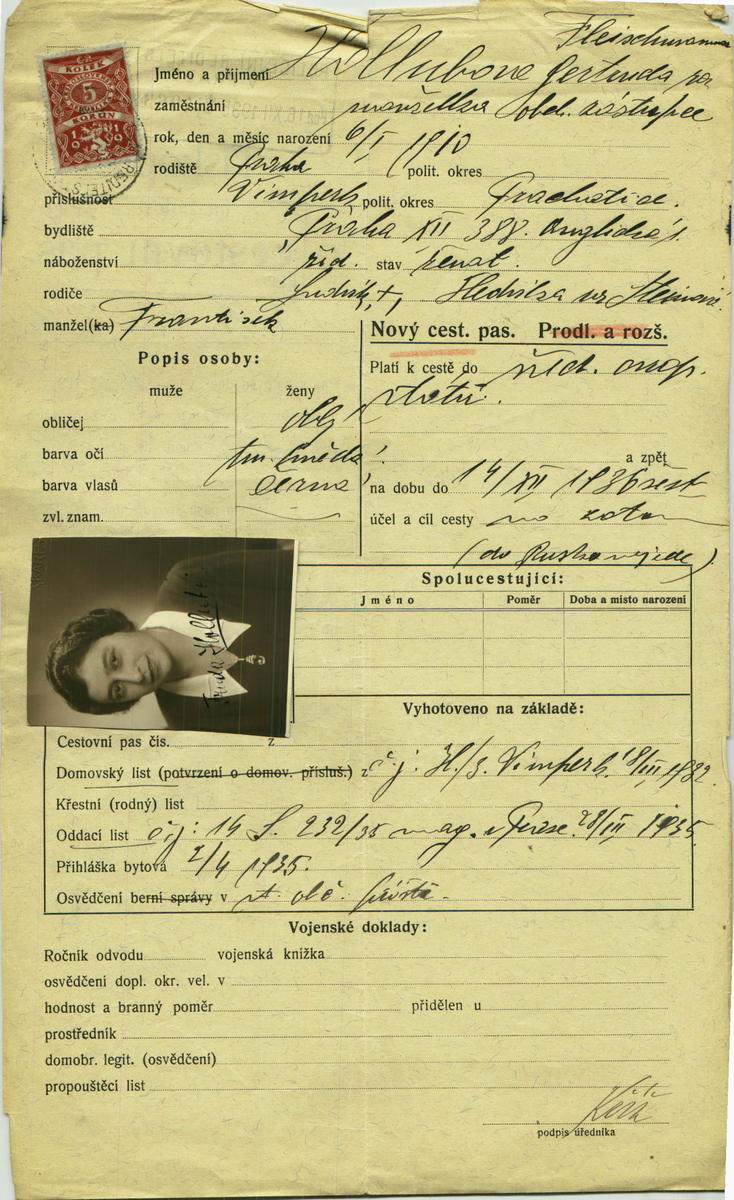 KOLEK
5
KORUN
Fleischmann
Jméno a příjmení Hollubová Gertruda roz.
zaměstnání manželka obch. zástupce
rok, den a měsíc narození 6/I 1910
rodiště Praha polit. okres
příslušnost Vimperk polit. okres Prachatice.
bydliště Praha XII 388. Anglická 1.
náboženství žid. stav
rodiče +, Hedvika
manžel(ka) František
Nový cest. pas. Prodl. a rozš.
Popis osoby:
Platí k cestě do evrop.
muže ženy
států.
obličej obl.
barva očí tm. hnědá
a zpět
barva vlasů černá
na dobu do 14/XII 1936
zvl. znam.
účel a cíl cesty
(do Ruska nejede)
Spolucestující:
Jméno Poměr Doba a místo narození
Truda Hollub
Vyhotoveno na základě:
Cestovní pas čís. z
Domovský list (potvrzení o domov. přísluš.) z č.j: Vimperk 1932
Křestní (rodný) list
Oddací list č.j: 14 S. 232/35 mag. 28/III 1935
Přihláška bytová 2/4 1935.
Osvědčení berní správy v st. obč.
Vojenské doklady:
Ročník odvodu vojenská knížka
osvědčení dopl. okr. vel. v
hodnost a branný poměr přidělen u
prostředník
domobr. legit. (osvědčení)
propouštěcí list
podpis úředníka